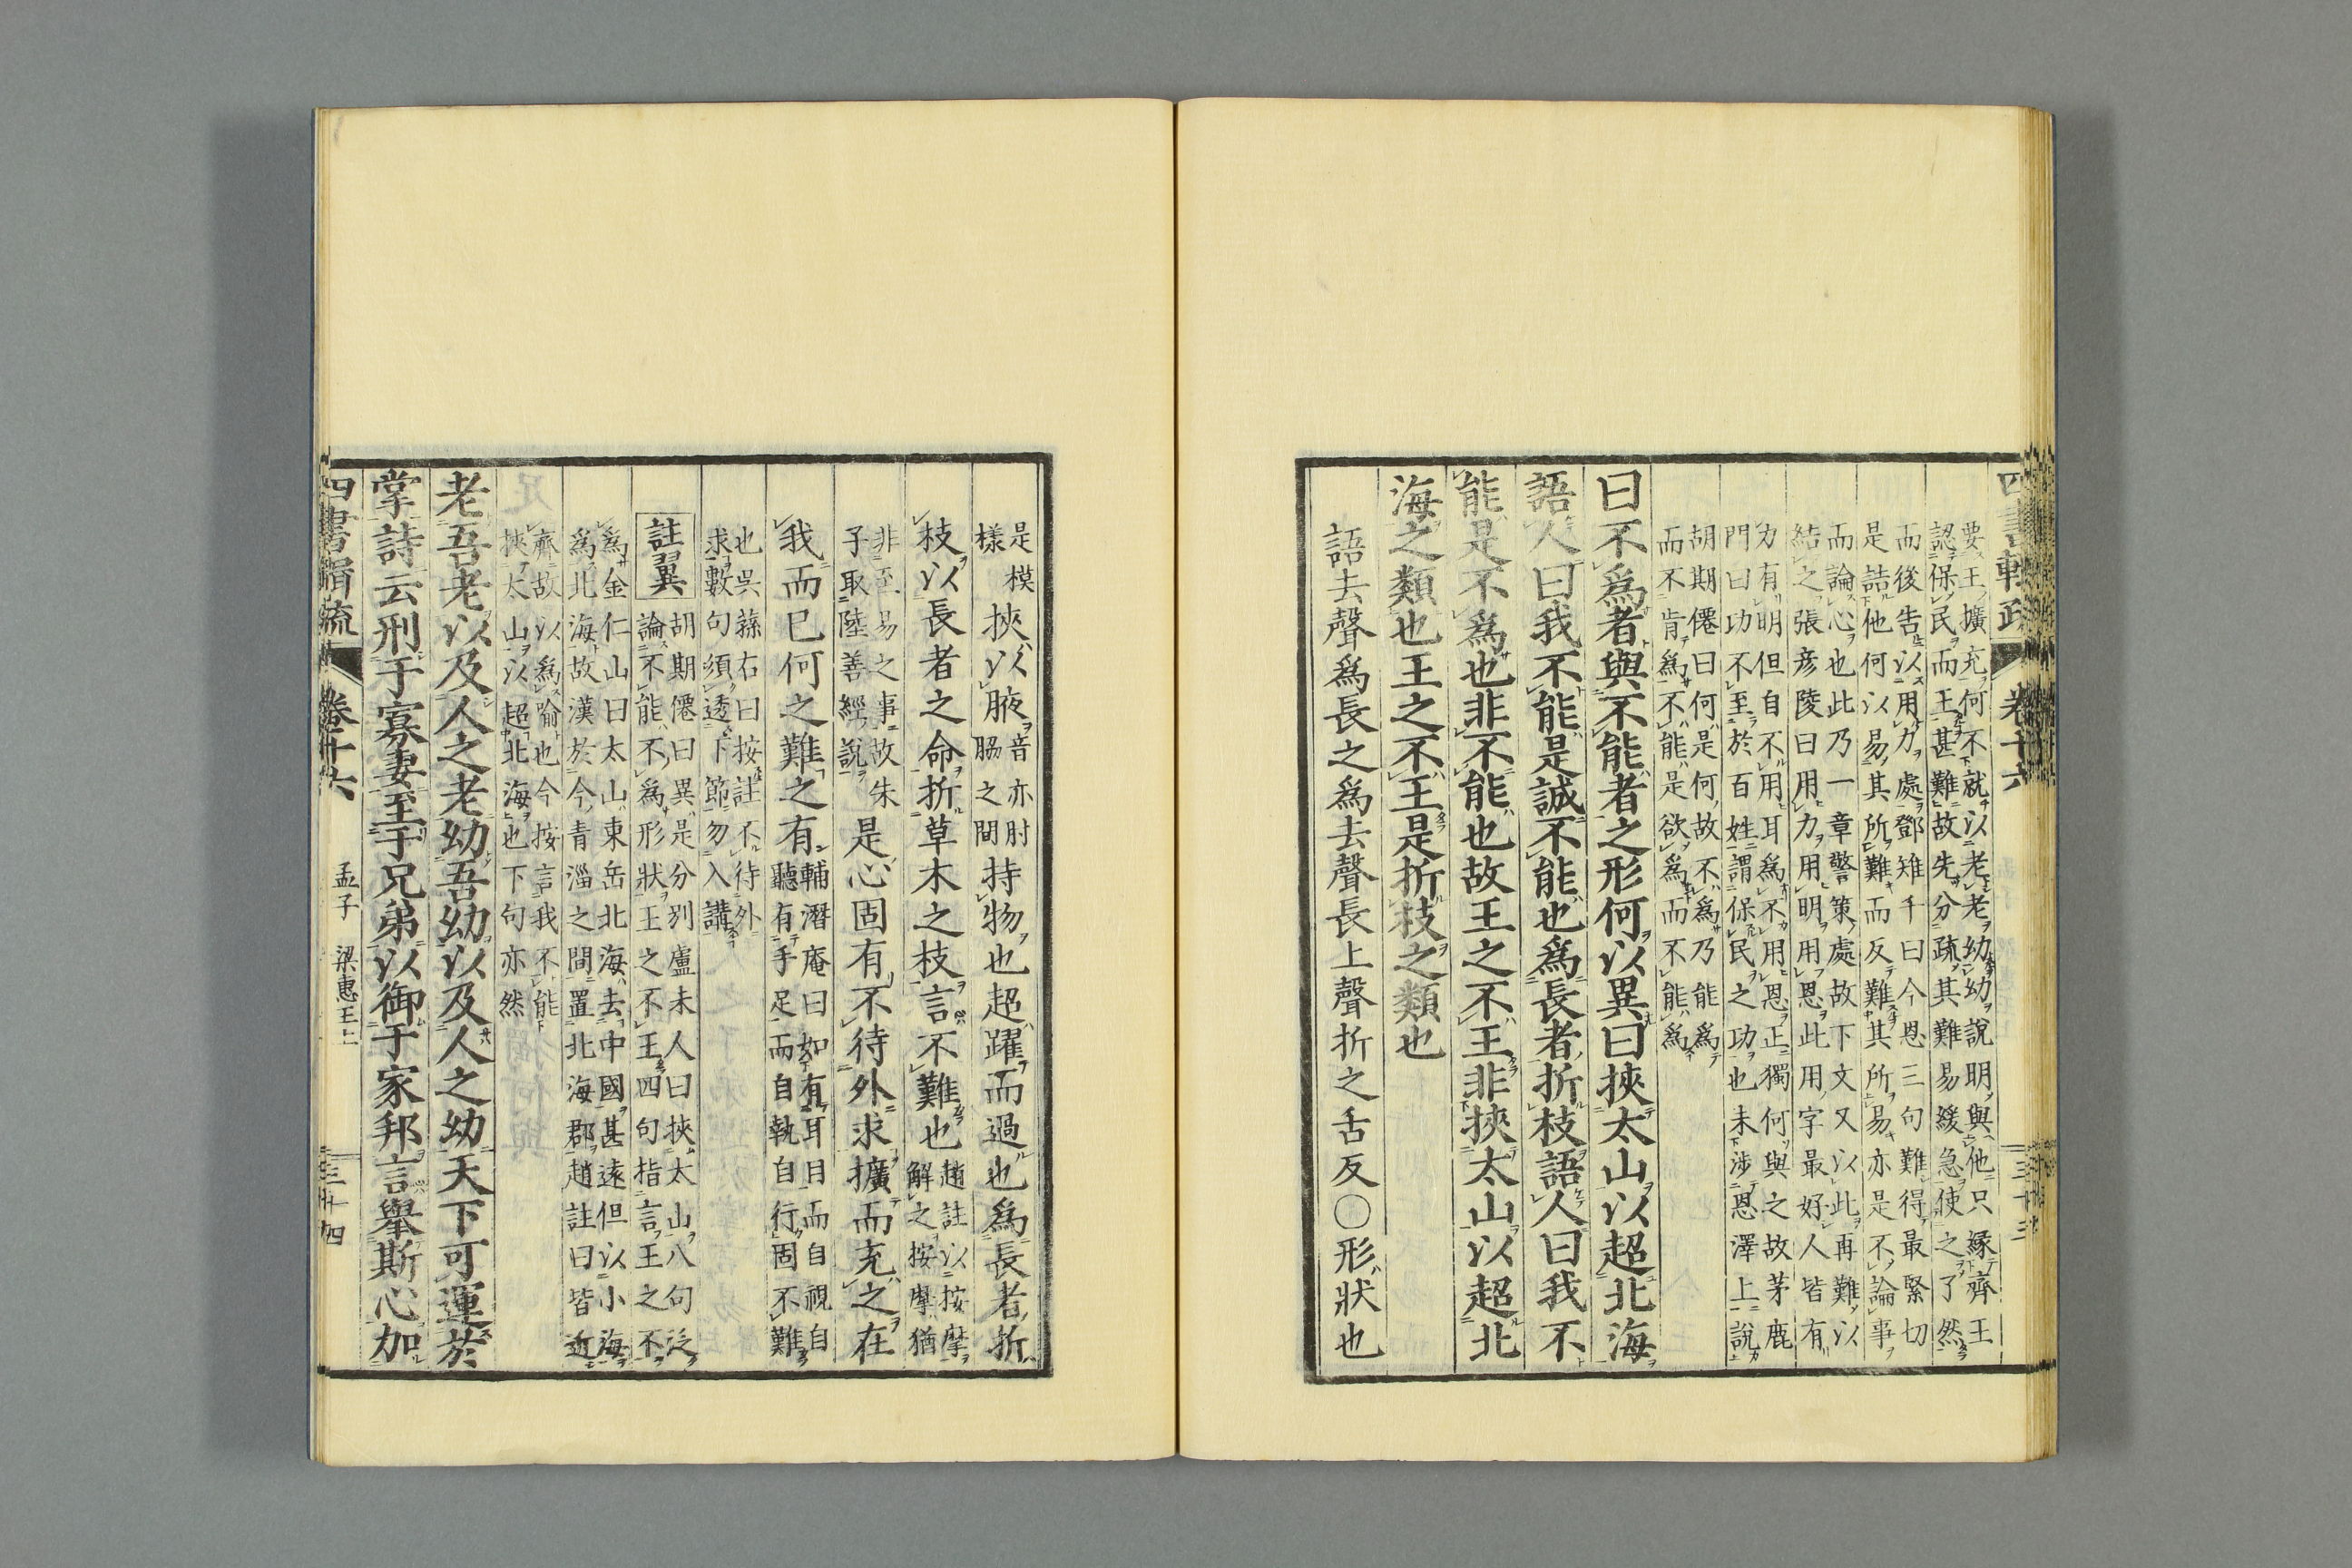 四書輯疏 卷十六 三十三
要王擴充何不就以老老幼幼說明與他只緣齊王
認保民而王甚難故先分疏其難易緩急使之了然
而後告以用力處鄧雉千曰今恩三句難得最緊切
是詰他何以易其所難而反難其所易亦是不論事
而論心也此乃一章警策處故下文又以此再難以
結之張彥陵曰用力用明用恩此用字最好人皆有
力有明但自不用耳爲不用恩正獨何與之故茅鹿
門曰功不至於百姓謂保民之功也未涉恩澤上說
胡期僊曰何是何故不爲乃能爲
而不肯爲不能是欲爲而不能爲
曰不爲者與不能者之形何以異曰挾太山以超北海
語人曰我不能是誠不能也爲長者折枝語人曰我不
能是不爲也非不能也故王之不王非挾太山以超北
海之類也王之不王是折枝之類也
語去聲爲長之爲去聲長上聲折之舌反○形狀也
是模
樣
挾以腋音亦肘
脇之間持物也超躍而過也爲長者折
枝以長者之命折草木之枝言不難也趙註以按摩
解之按摩猶
非至易之事故朱
子取陸善經說
是心固有不待外求擴而充之在
我而已何之難之有輔潛庵曰如有耳目而自視自
聽有手足而自執自行固不難
也吳蓀右曰按註不待外
求數句須透下節勿入講
註翼 胡期僊曰異是分別盧未人曰挾太山八句泛
論不能不爲形狀王之不王四句指言王之不
爲金仁山曰太山東岳北海去中國甚遠但以小海
爲北海故漢於今青淄之間置北海郡趙註曰皆近
齊故以爲喻也今按言我不能
挾太山以超北海也下句亦然
老吾老以及人之老幼吾幼以及人之幼天下可運於
掌詩云刑于寡妻至于兄弟以御于家邦言舉斯心加
四書輯疏 卷十六 孟子 梁惠王上 三十四